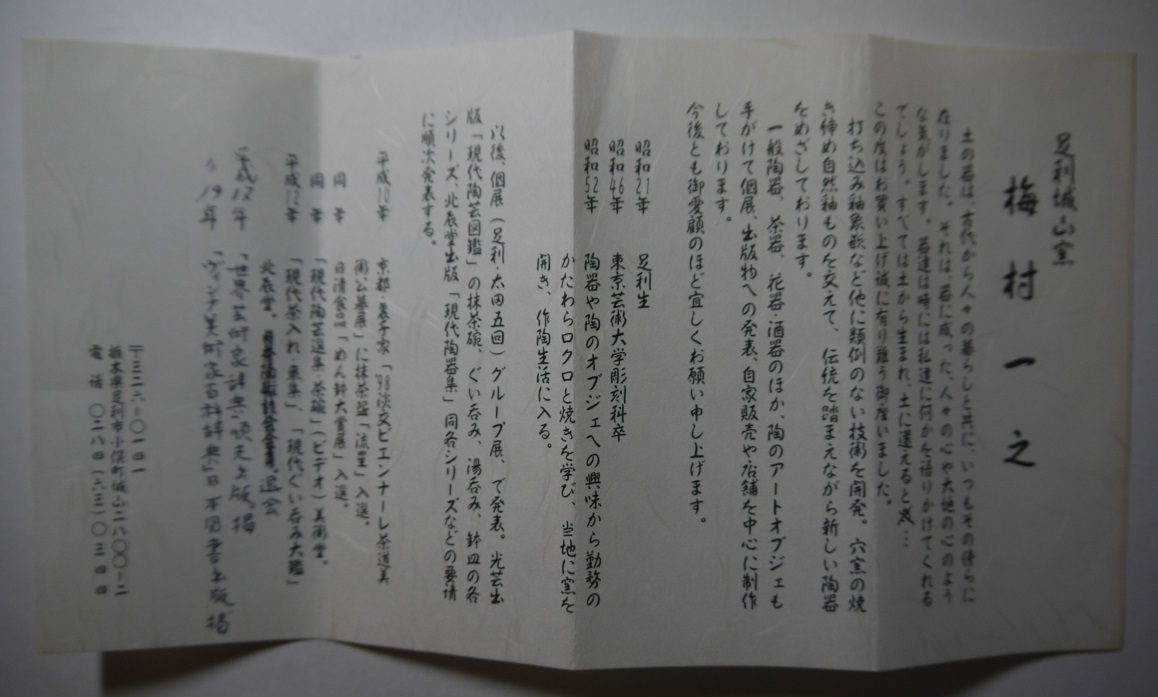 足利城山窯
梅村一之
土の器は、古代から人々の暮らしと共に、いつもその傍らに
在りました。それは、器に成った、人々の心や大地の心のよう
な気がします。器達は時には私達に何かを語りかけてくれる
でしょう。すべては土から生まれ、土に還えると感…
この度はお買い上げ誠に有り難う御座いました。
打ち込み釉象嵌など他に類例のない技術を開発。穴窯の焼
き締め自然釉ものを交えて、伝統を踏まえながら新しい陶器
をめざしております。
一般陶器、茶器、花器・酒器のほか、陶のアートオブジェも
手がけて個展、出版物への発表、自家販売や店舗を中心に制作
しております。
今後とも御愛顧のほど宜しくお願い申し上げます。
昭和21年 足利生
昭和46年 東京芸術大学彫刻科卒
昭和52年 陶器や陶のオブジェへの興味から勤務の
かたわらロクロと焼きを学び、当地に窯を
開き、作陶生活に入る。
以後、個展（足利・太田五回）グループ展、で発表。光芸出
版「現代陶芸図鑑」の抹茶碗、ぐい呑み、湯呑み、鉢皿の各
シリーズ、北辰堂出版「現代陶器集」同各シリーズなどの要請
に順次発表する。
平成10年 京都・表千家「'98淡交ビエンナーレ茶道美
術公募展」に抹茶盌「流星」入選。
同 年 日清食品「めん鉢大賞展」入選。
同 年 「現代陶芸選集・茶碗」（ビデオ）美術堂。
平成12年 「現代茶入れ・棗集」、「現代ぐい呑み大鑑」
北辰堂。
平成12年 「世界芸術家辞典」順天出版、掲
〃 19年 「ヴィンチ美術家百科辞典」日本図書出版 掲
〒三二六-〇一四一
栃木県足利市小俣町城山二八〇〇-二
電 話 〇二八四（六三）〇三四四